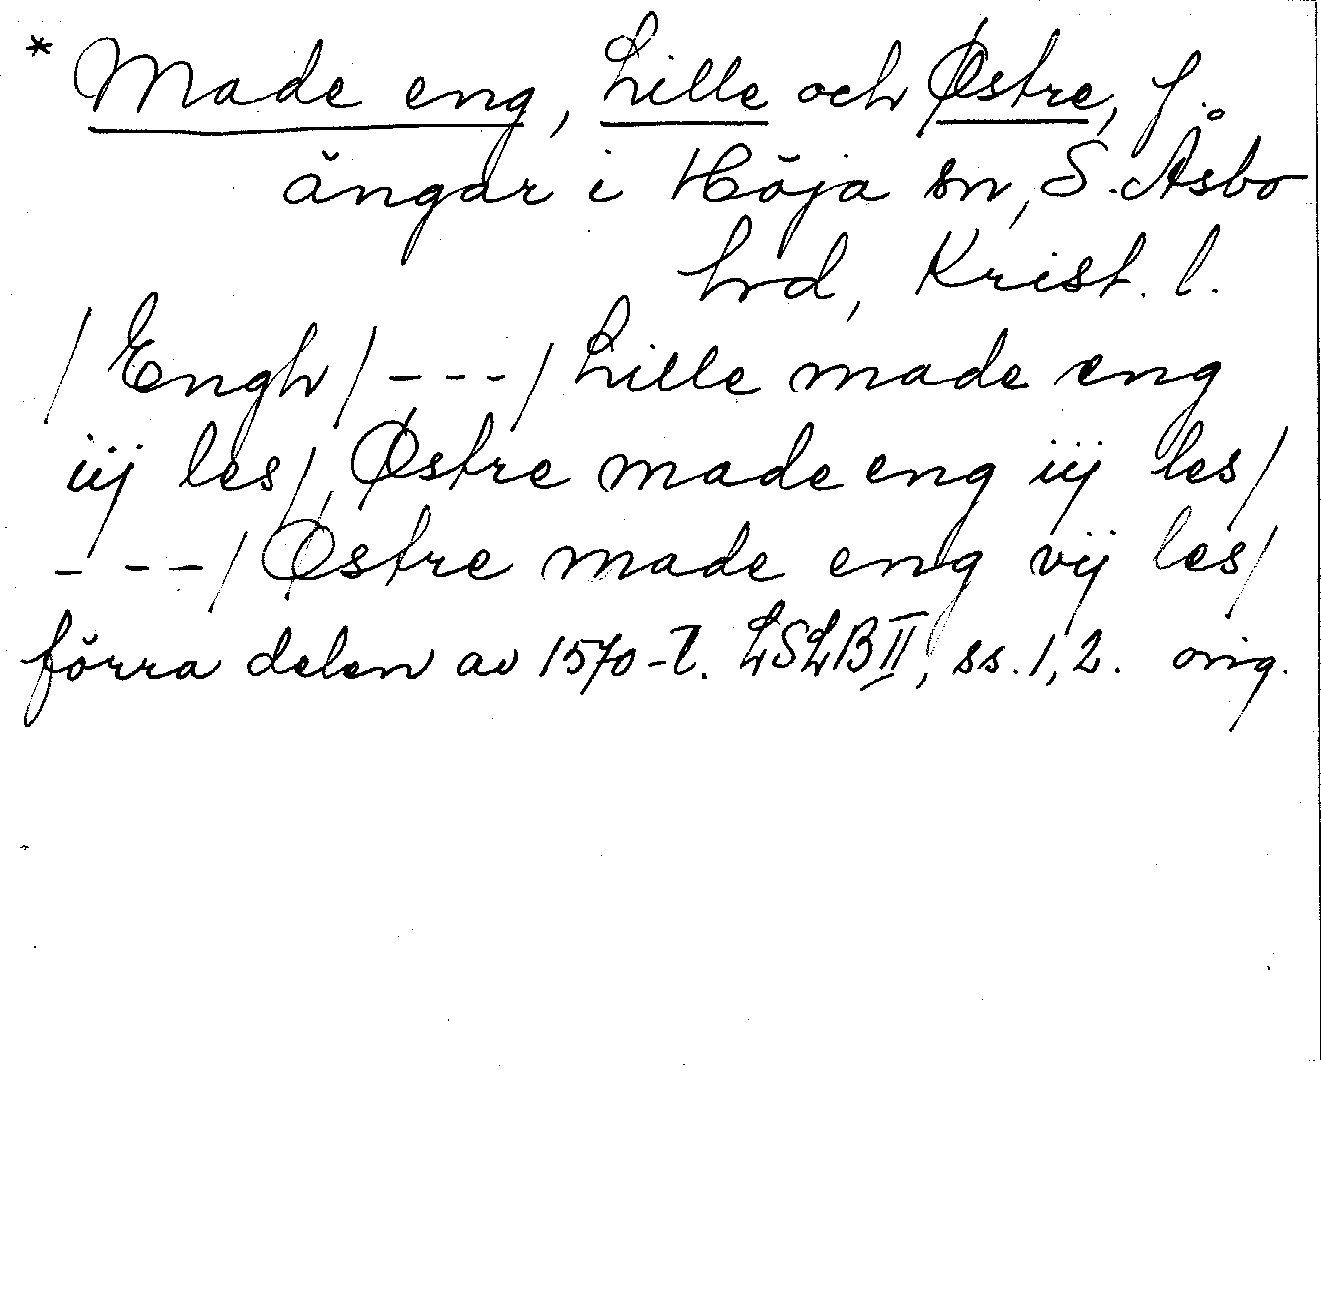 * Made eng, Lille och Østre, f.
ängar i Höja sn, S. Åsbo
hrd, Krist. l.
/ Engh / --- / Lille made eng
iij les /, Østre made eng iij les /
--- / Østre made eng vij les /
förra delen av 1570-t. LSLB II, ss. 1, 2. orig.